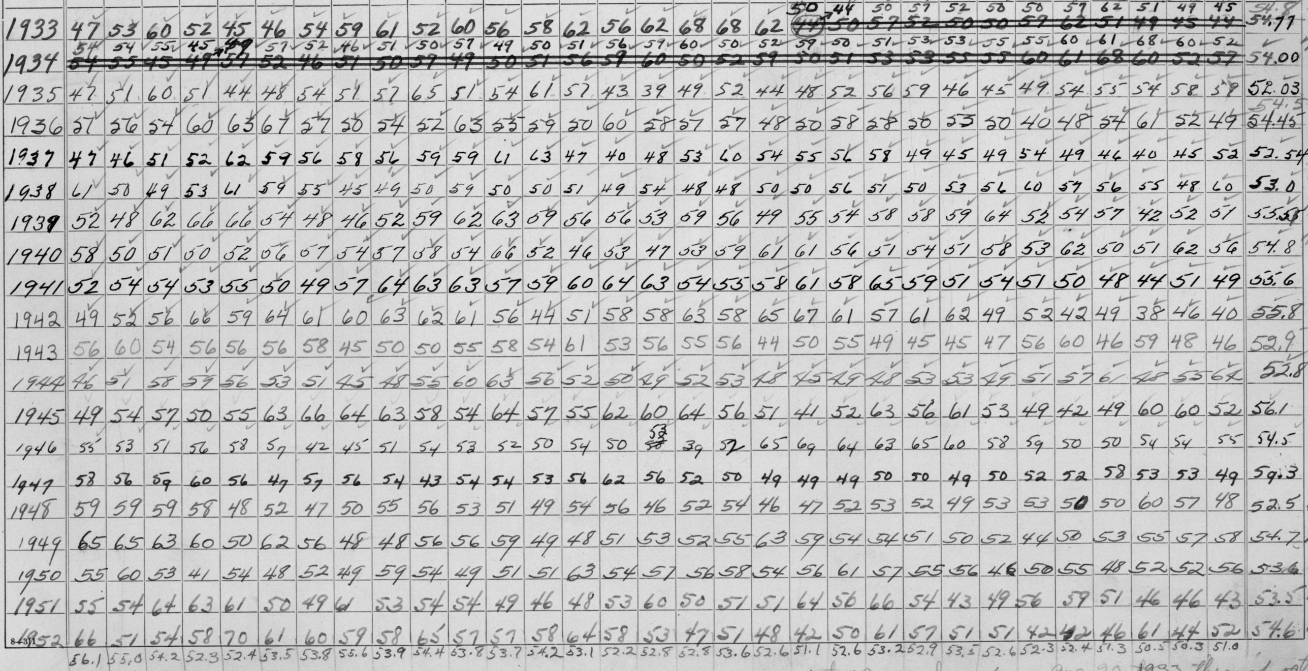 50 44 50 57 52 50 50 57 62 51 49 45 54.8
1933 47 53 60 52 45 46 54 59 61 52 60 56 58 62 56 62 68 68 62 44 50 57 52 50 50 57 62 51 49 45 44 54.77
54 54 55 45 49 57 52 46 51 50 57 49 50 51 56 59 60 50 52 59 50 51 53 53 55 55 60 61 68 60 52
1934 54 55 45 49 57 52 46 51 50 57 49 50 51 56 59 60 50 52 59 50 51 53 53 55 55 60 61 68 60 52 57 54.00
1935 47 51 60 51 44 48 54 51 57 65 51 54 61 57 43 39 49 52 44 48 52 56 59 46 45 49 54 55 54 58 59 52.03
54.5
1936 57 56 54 60 63 67 57 50 54 52 63 55 59 50 60 58 57 57 48 50 58 58 50 55 50 40 48 54 61 52 49 54.45
1937 47 46 51 52 62 59 56 58 56 59 59 61 63 47 40 48 53 60 54 55 56 58 49 45 49 54 49 46 40 45 52 52.54
1938 61 50 49 53 61 59 55 45 49 50 59 50 50 51 49 54 48 48 50 50 56 51 50 53 56 60 57 56 55 48 60 53.0
1939 52 48 62 66 66 54 48 46 52 59 62 63 59 56 56 53 59 56 49 55 54 58 58 59 64 52 54 57 42 52 51 55.58
1940 58 50 51 50 52 56 57 54 57 58 54 66 52 46 53 47 53 59 61 61 56 51 54 51 58 53 62 50 51 62 56 54.8
1941 52 54 54 53 55 50 49 57 64 63 63 57 59 60 64 63 54 55 58 61 58 65 59 51 54 51 50 48 44 51 49 55.6
1942 49 52 56 66 59 64 61 60 63 62 61 56 44 51 58 58 63 58 65 67 61 57 61 62 49 52 42 49 38 46 40 55.8
1943 56 60 54 56 56 56 58 45 50 50 55 58 54 61 53 56 55 56 44 50 55 49 45 45 47 56 60 46 59 48 46 52.9
1944 46 51 58 59 56 53 51 45 48 55 60 63 56 52 50 49 52 53 48 45 49 48 53 53 49 51 57 61 48 55 64 52.8
1945 49 54 57 50 55 63 66 64 63 58 54 64 57 55 62 60 64 56 51 41 52 63 56 61 53 49 42 49 60 60 52 56.1
1946 55 53 51 56 58 57 42 45 51 54 53 52 50 54 50 53 39 52 65 69 64 63 65 60 58 59 50 50 54 54 55 54.5
1947 58 56 59 60 56 47 57 56 54 43 54 54 53 56 62 56 52 50 49 49 49 50 50 49 50 52 52 58 53 53 49 59.3
1948 59 59 59 58 48 52 47 50 55 56 53 51 49 54 56 46 52 54 46 47 52 53 52 49 53 53 50 50 60 57 48 52.5
1949 65 65 63 60 50 62 56 48 48 56 56 59 49 48 51 53 52 55 63 59 54 54 51 50 52 44 50 53 55 57 58 54.7
1950 55 60 53 41 54 48 52 49 59 54 49 51 51 63 54 57 56 58 54 56 61 57 55 56 46 50 55 48 52 52 56 53.6
1951 55 54 64 63 61 50 49 61 53 54 54 49 46 48 53 60 50 51 51 64 56 66 54 43 49 56 59 51 46 46 43 53.5
1952 66 51 54 58 70 61 60 59 58 65 57 57 58 64 58 53 47 51 48 42 50 61 57 51 51 42 42 46 61 44 52 54.6
56.1 55.0 54.2 52.3 52.4 53.5 53.8 55.6 53.9 54.4 53.8 53.7 54.2 53.1 52.2 52.8 52.8 53.6 52.6 51.1 52.6 53.2 52.9 53.5 52.6 52.3 52.4 51.3 50.5 50.3 51.0